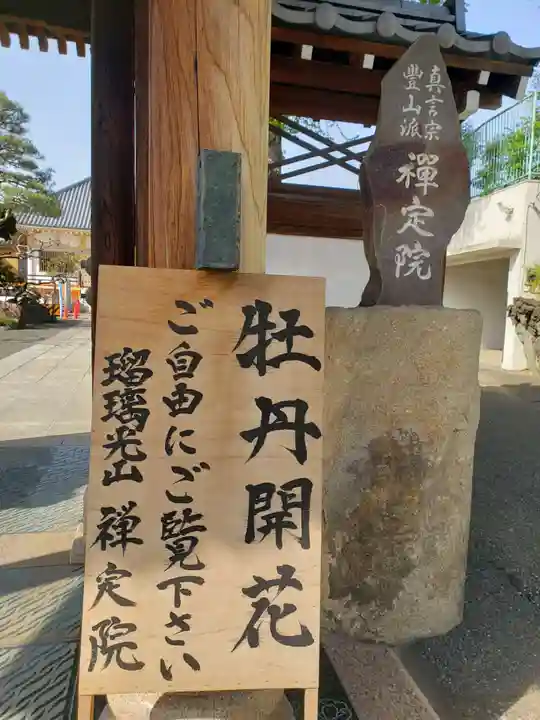 牡丹開花
ご自由にご覧下さい
瑠璃光山 禅定院
真言宗
豊山派
禪定院